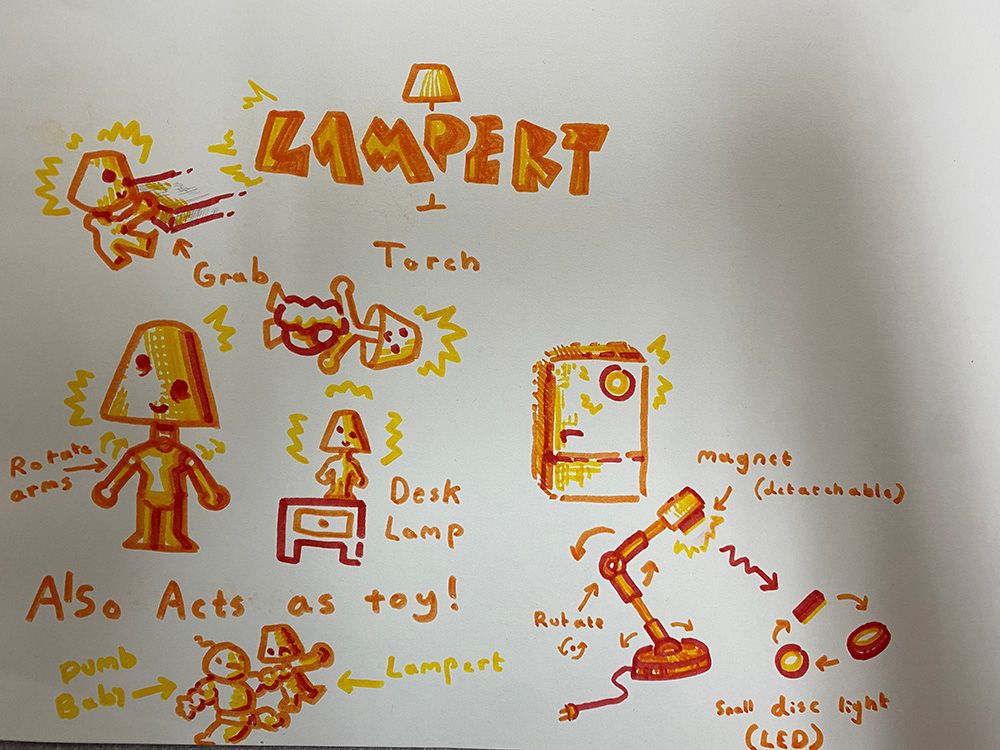 LAMPERT
Grab
Torch
Rotate
arms
Desk
Lamp
Also Acts as toy!
Dumb
Baby
Lampert
magnet
(detarchable)
Rotate
Small disc light
(LED)